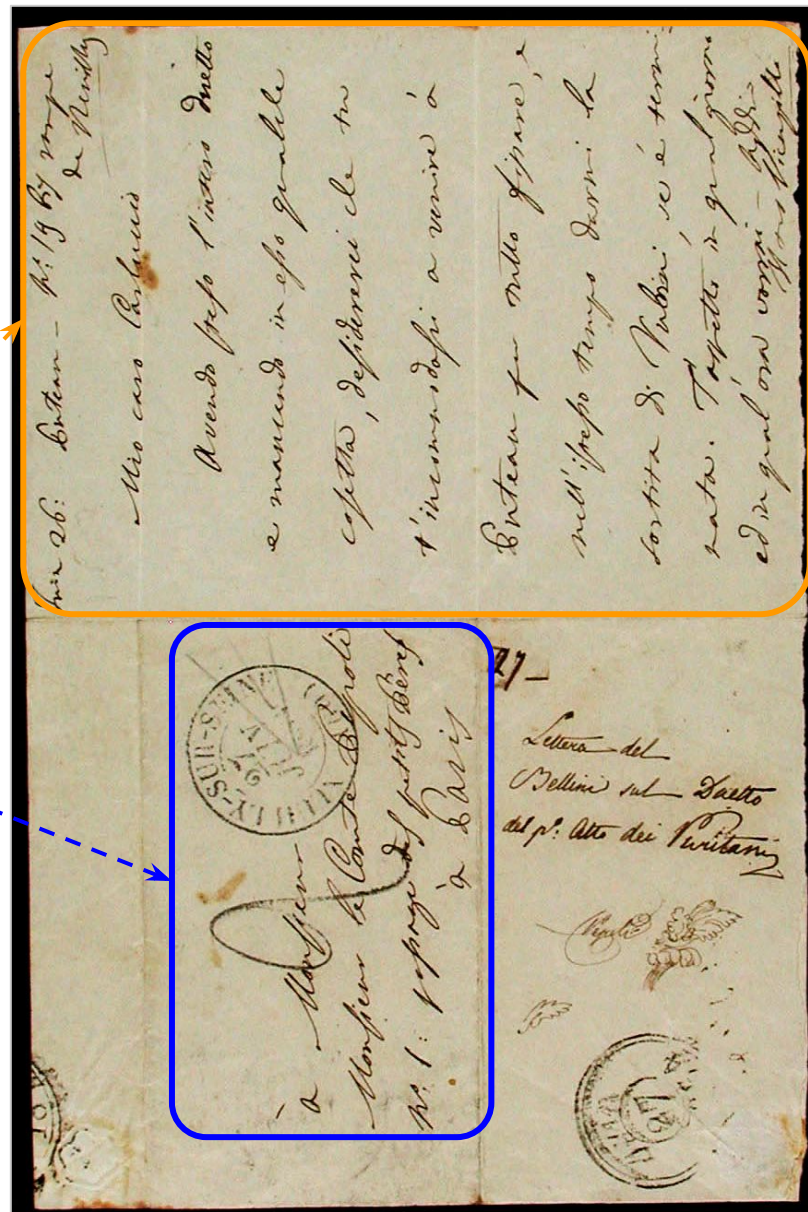 26: Puteau – Nº 19 bis rampe
de Neuilly
Mio caro Carluccio
Avendo speso l'intero duetto
e mancando in esso qualche
cosetta, desidererei che tu
t'incomodassi a venire à
Puteau per tutto fissare, e
nell'istesso tempo darmi la
sortita di Rubini se è termi-
nata. T'aspetto in qual giorno
ed in qual'ora vorrai – Addio
à Monsieur
Monsieur le Comte Pepoli
Nº 1: passage des petits Pères
à Paris
NEUILLY-SUR-SEINE
27 –
Lettera del
Bellini sul Duetto
del pº: Atto dei Puritani
Pepoli
27